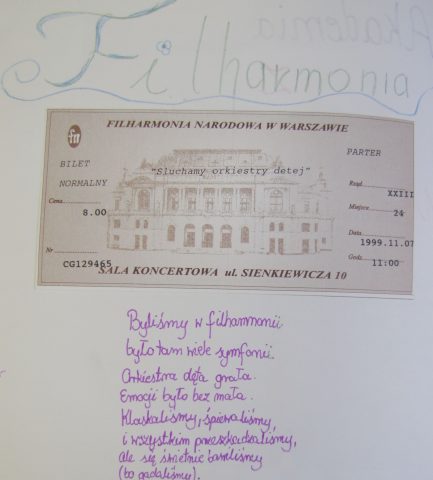 Filharmonia
FILHARMONIA NARODOWA W WARSZAWIE
BILET
NORMALNY
Cena
8.00
Nr
CG129465
"Słuchamy orkiestry detej"
PARTER
Rząd
XXIII
Miejsce
24
Data
1999.11.07
Godz.
11:00
SALA KONCERTOWA ul. SIENKIEWICZA 10
Byliśmy w filharmonii
było tam wiele symfonii.
Orkiestra dęta grała.
Emocji było bez mała.
Klaskaliśmy, śpiewaliśmy,
i wszystkim przeszkadzaliśmy,
ale się świetnie bawiliśmy
(bo gadaliśmy).
Akademia